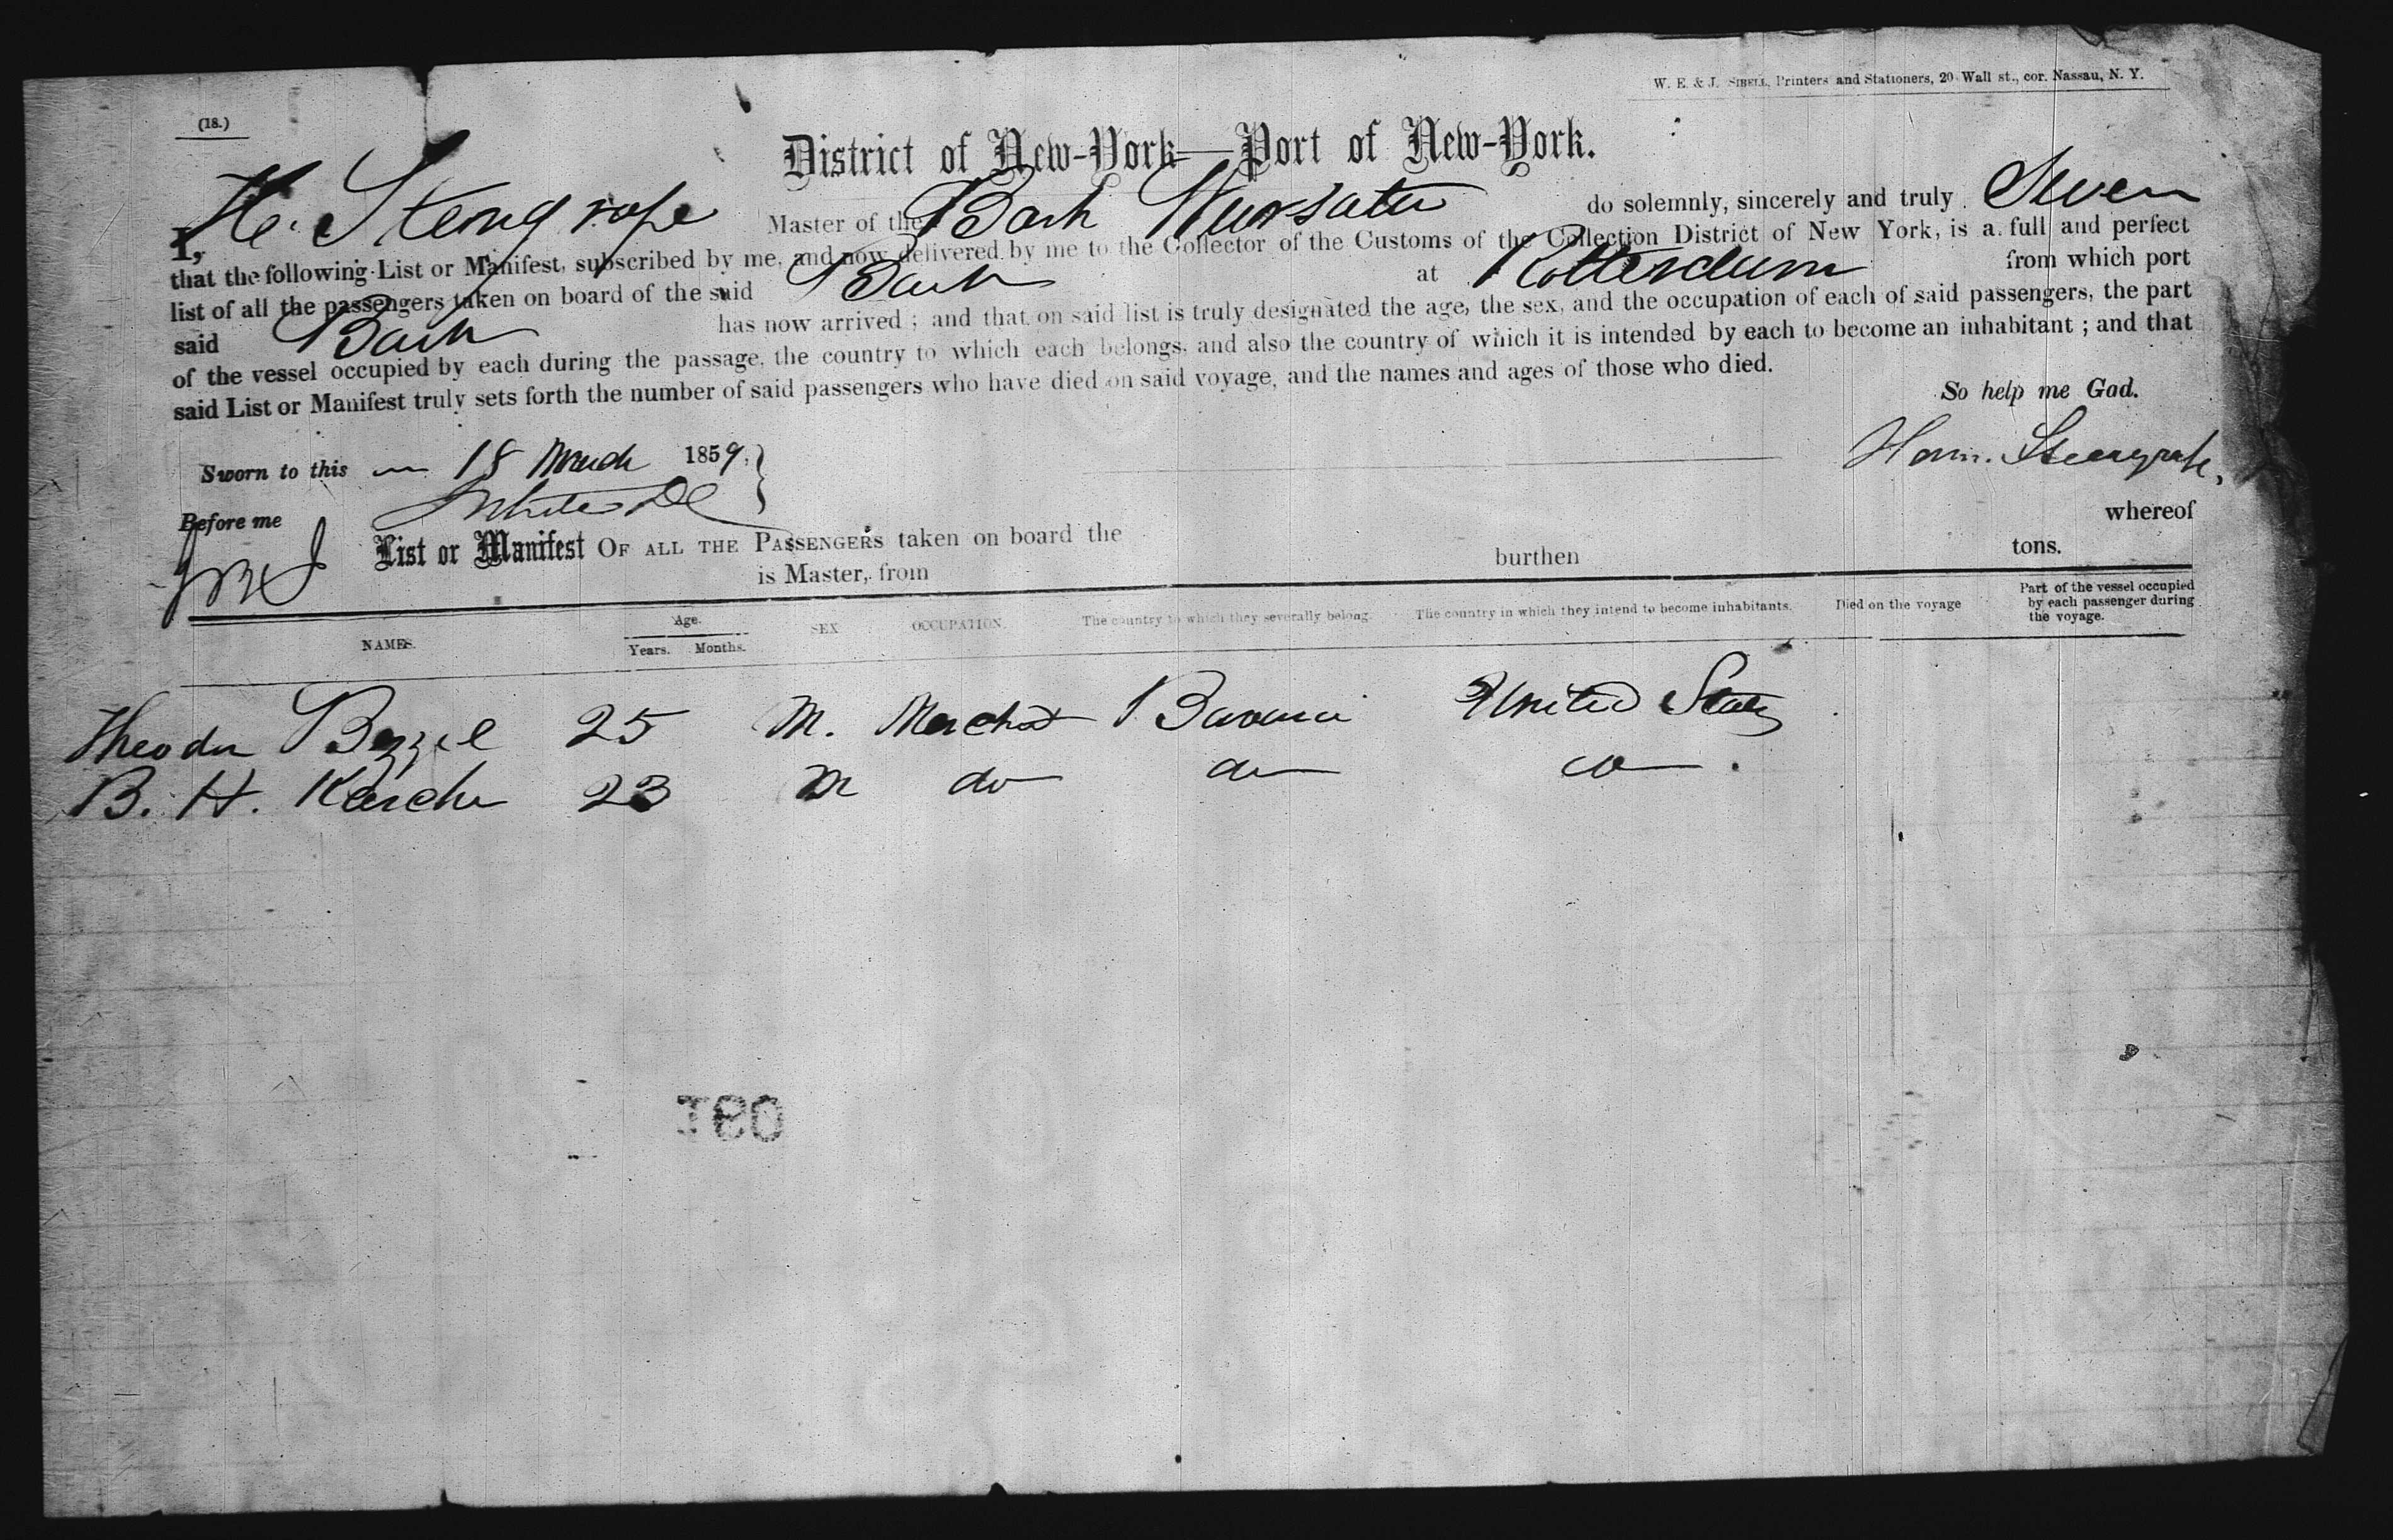 W. E. & J. SIBELL, Printers and Stationers, 20 Wall st., cor. Nassau, N. Y.
(18.)
District of New-York—Port of New-York.
I, H. Stengrape Master of the Bark do solemnly, sincerely and truly Swear
that the following List or Manifest, subscribed by me, and now delivered by me to the Collector of the Customs of the Collection District of New York, is a full and perfect
list of all the passengers taken on board of the said Bark at Rotterdam from which port
said Bark has now arrived; and that on said list is truly designated the age, the sex, and the occupation of each of said passengers, the part
of the vessel occupied by each during the passage, the country to which each belongs, and also the country of which it is intended by each to become an inhabitant; and that
said List or Manifest truly sets forth the number of said passengers who have died on said voyage, and the names and ages of those who died.
So help me God.
Sworn to this 18 March 1859.
Before me
List or Manifest OF ALL THE PASSENGERS taken on board the whereof
is Master, from burthen tons.
NAMES. Age. Years. Months. SEX OCCUPATION. The country to which they severally belong. The country in which they intend to become inhabitants. Died on the voyage Part of the vessel occupied by each passenger during the voyage.
Theodor Bezzel 25 M. Merchat Bavaria United States
B. H. 23 M do do do
180